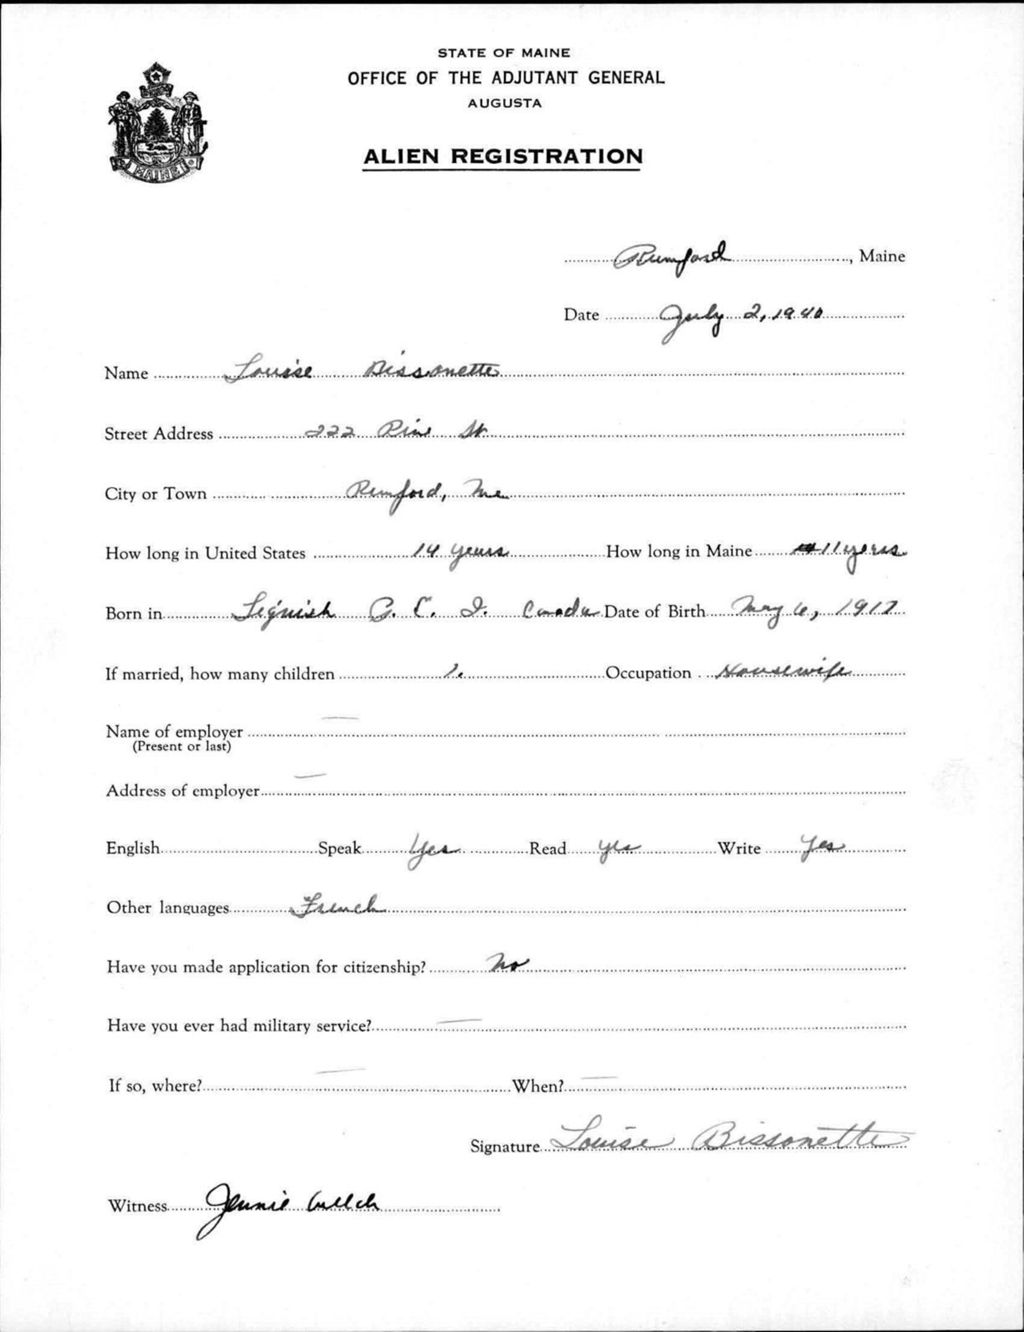 STATE OF MAINE
OFFICE OF THE ADJUTANT GENERAL
AUGUSTA
ALIEN REGISTRATION
MAINE
Rumford, Maine
Date July 2, 1940
Name Louise Bissonette
Street Address 222 Pine St
City or Town Rumford, Me
How long in United States 14 years How long in Maine 11 years
Born in Tignish P. E. I. Canada Date of Birth May 6, 1917
If married, how many children 1. Occupation Housewife
Name of employer —
(Present or last)
Address of employer —
English Speak Yes Read yes Write Yes
Other languages French
Have you made application for citizenship? No
Have you ever had military service? —
If so, where? — When? —
Signature Louise Bissonette
Witness Jennie Welch